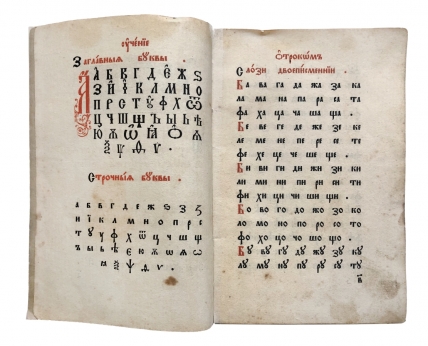 Ꙋ҆че́нїе
Загла́вныѧ бꙋквы
А Б В Г Д Є Ж Ѕ
З И І К Л М Н О
П Р С Т Ꙋ Ф Х Ѿ
Ц Ч Ш Щ Ъ Ы Ь Ѣ
Ю Ѧ
Ѯ Ѱ Ѳ Ѵ
Стро́чныѧ бꙋквы
а б в г д є ж ѕ з
и ї к л м н о п р с
ц ч ш щ
ѯ ѱ ѳ ѵ
Ѻ҆трокѡ́мъ
Сло́зи двоеписменнїи
Ба ва га да жа за ка
ла ма на па ра са та
фа ха ца ча ша ща
Бе ве ге де же зе ке
ле ме не пе ре се те
фе хе це че ше ще
Би ви ги ди жи зи ки
ли ми ни пи ри си ти
фи хи ци чи ши щи
Бо во го до жо зо ко
ло мо но по ро со то
фо хо цо чо шо що
Бꙋ вꙋ гꙋ дꙋ жꙋ зꙋ кꙋ
лꙋ мꙋ нꙋ пꙋ рꙋ сꙋ тꙋ